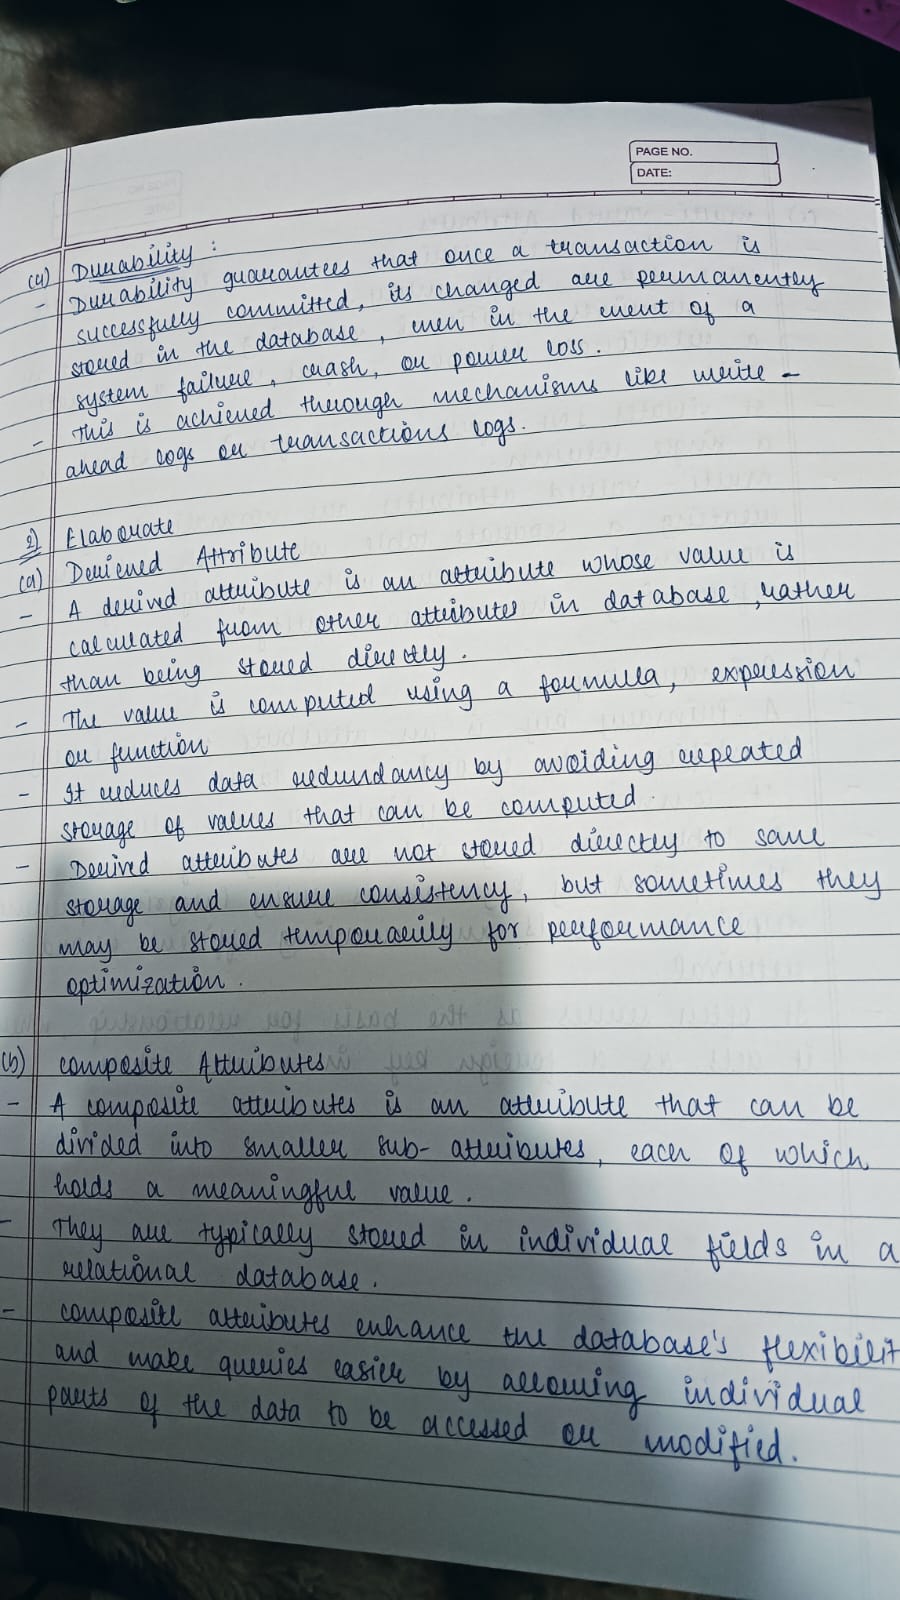 PAGE NO.
DATE:
(4) Durability :
- Durability guarantees that once a transaction is
successfully committed, its changed are permanently
stored in the database, even in the event of a
system failure, crash, or power loss.
- This is achieved through mechanisms like write -
ahead logs or transactions logs.
2) Elaborate
(a) Derieved Attribute
- A derived attribute is an attribute whose value is
calculated from other attributes in database, rather
than being stored directly.
- The value is computed using a formula, expression
or function
- It reduces data redundancy by avoiding repeated
storage of values that can be computed.
- Derived attributes are not stored directly to save
storage and ensure consistency, but sometimes they
may be stored temporarily for performance
optimization.
(b) composite Attributes
- A composite attributes is an attribute that can be
divided into smaller sub-attributes, each of which
holds a meaningful value.
- They are typically stored in individual fields in a
relational database.
- composite attributes enhance the database's flexibilit
and make queries easier by allowing individual
parts of the data to be accessed or modified.